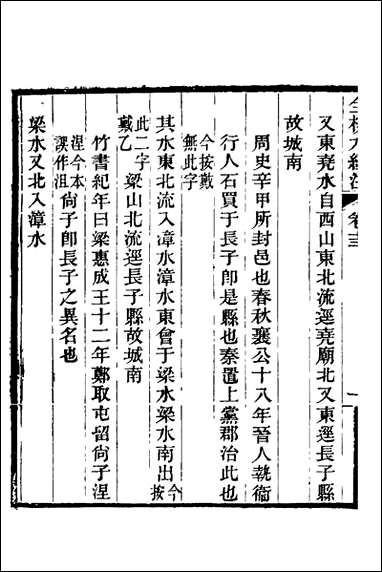 全校水經注 卷十
又東堯水自西山東北流逕堯廟北又東逕長子縣
故城南
周史辛甲所封邑也春秋襄公十八年晉人執衞
行人石買于長子卽是縣也秦置上黨郡治此也
今按戴無此字
其水東北流入漳水漳水東會于梁水梁水南出今按
此二字戴乙梁山北流逕長子縣故城南
竹書紀年曰梁惠成王十二年鄭取屯留尙子涅
涅今本誤作沮尙子卽長子之異名也
梁水又北入漳水